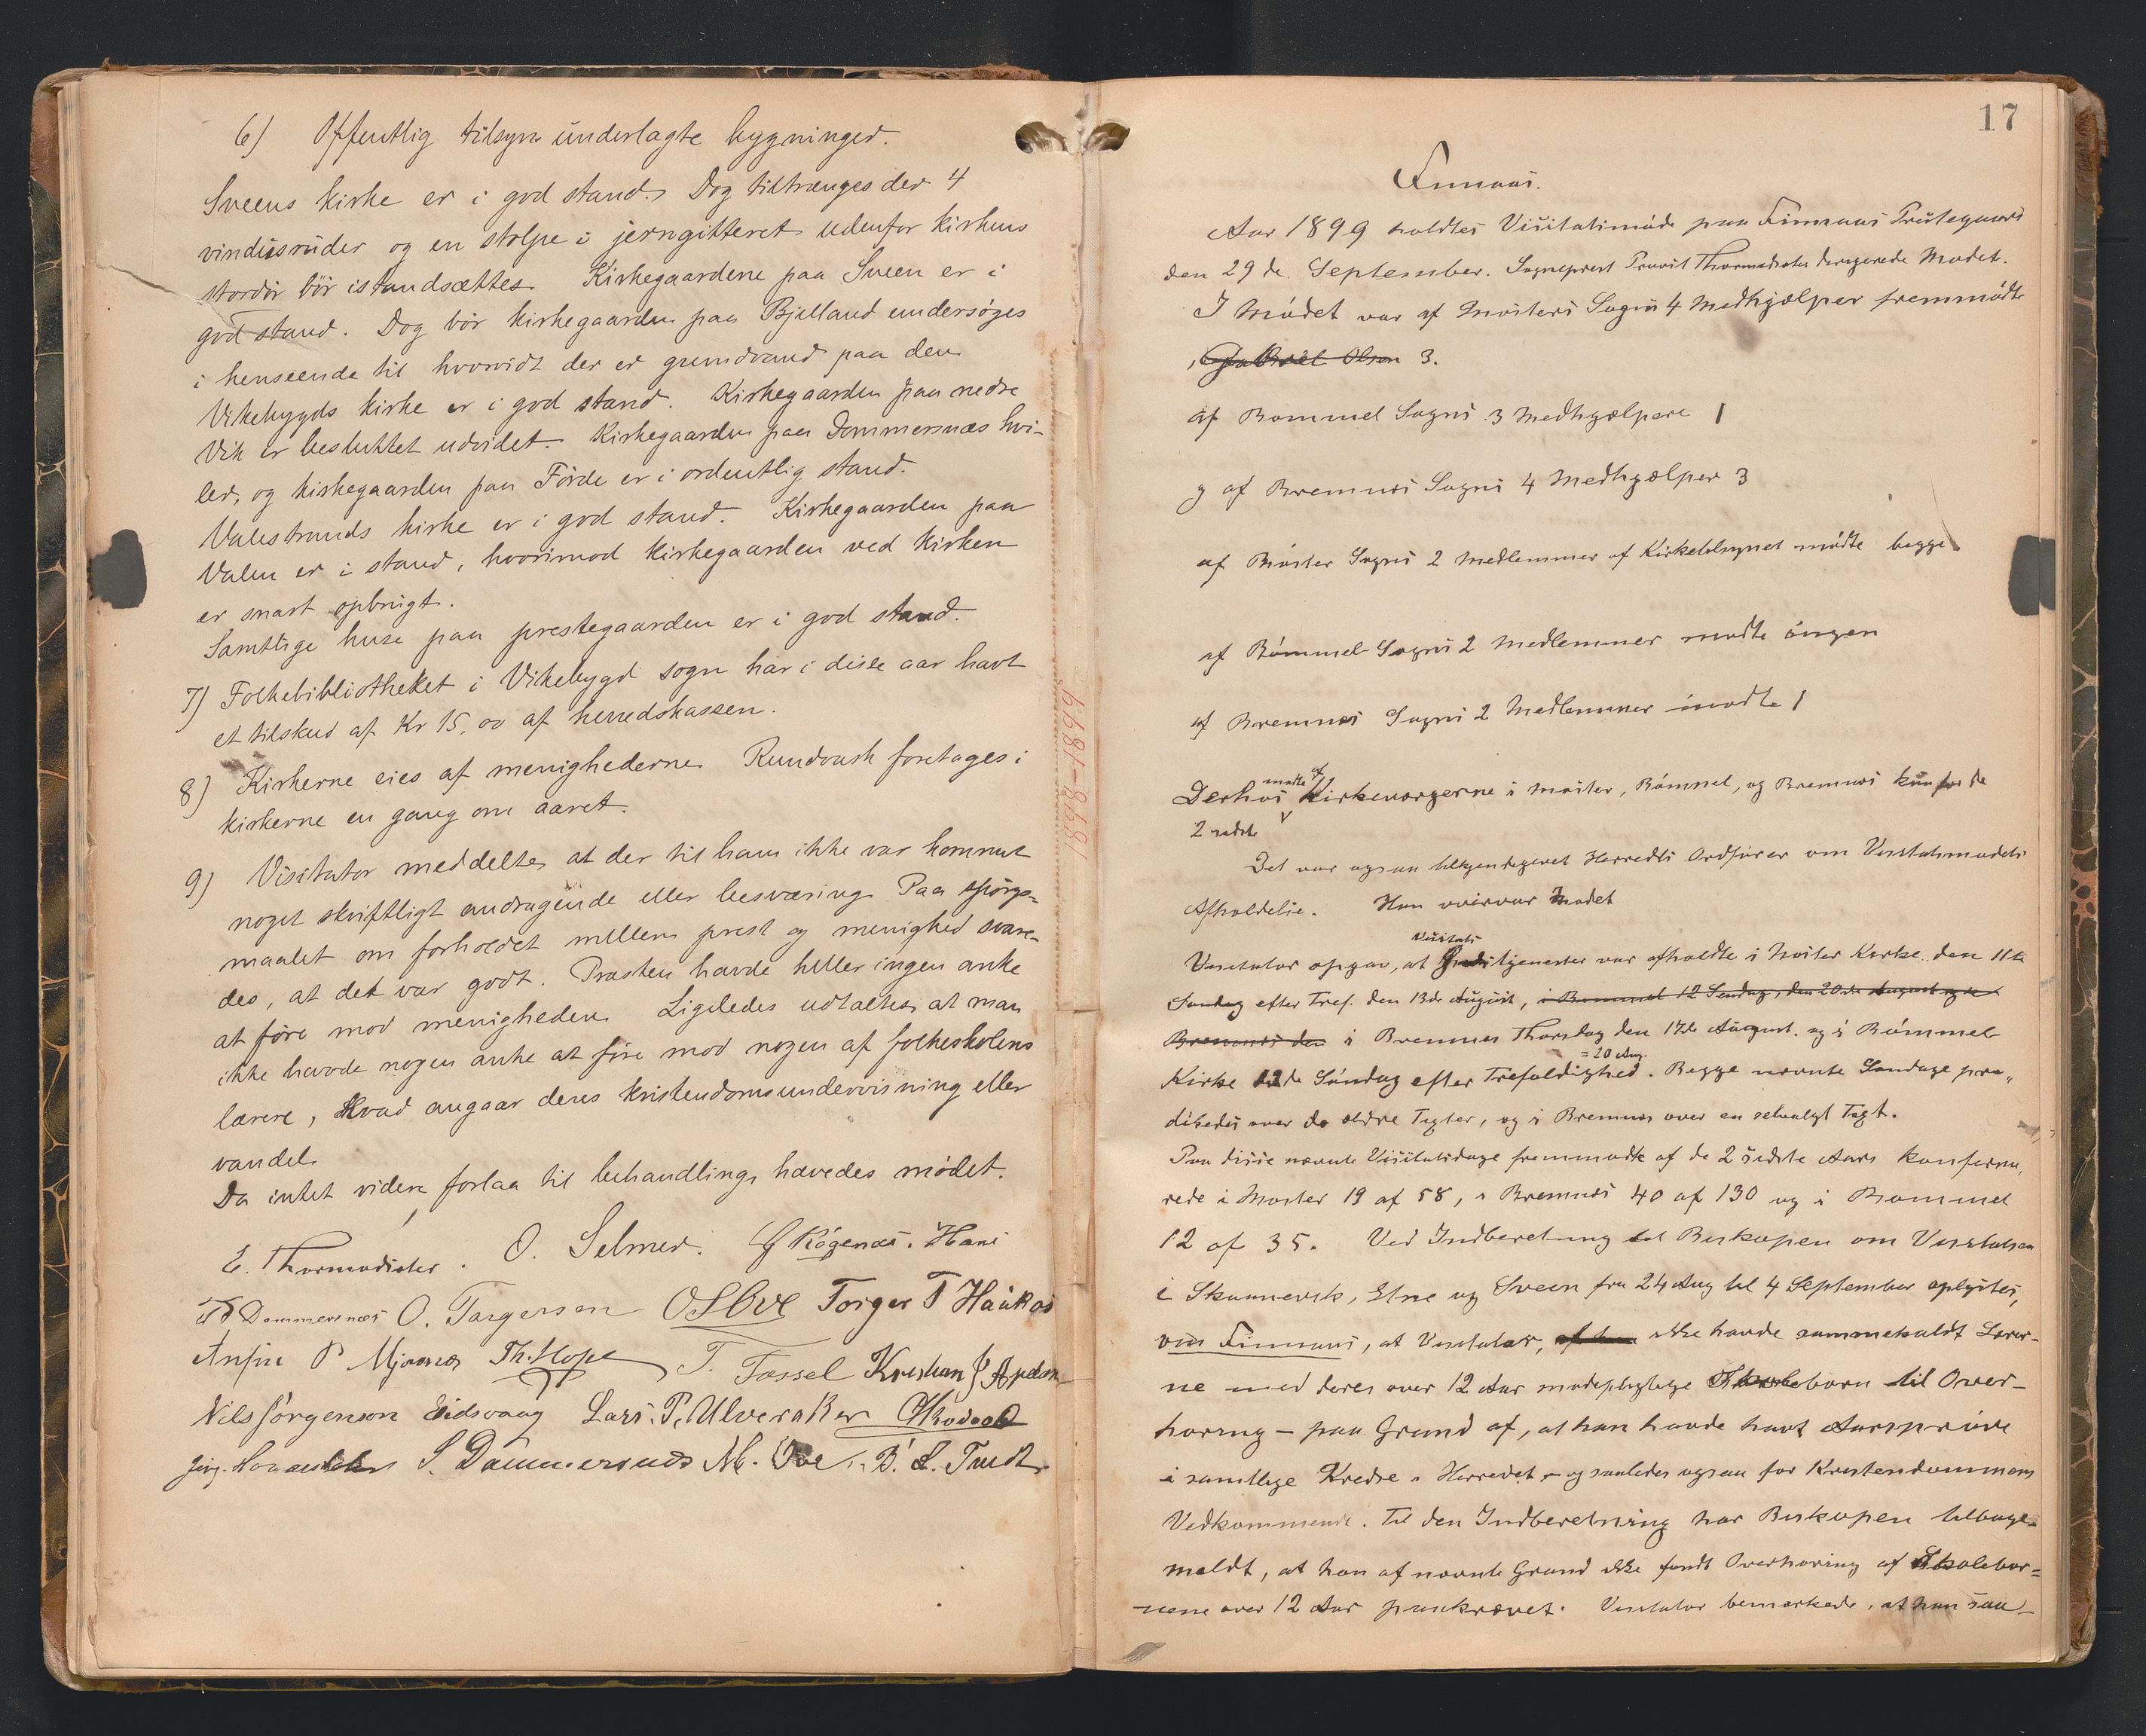 6) Offentlig tilsyn underlagte bygninger.
Sveens kirke er i god stand. Dog tiltrænges der 4
vindusruder og en stolpe i jerngitteret udenfor kirkens
stordör bör istandsættes. Kirkegaardene paa Sveen er i
god stand. Dog bör kirkegaarden paa Bjelland undersöges
i henseende til hvorvidt der er grundvand paa den
Vikebygds kirke er i god stand. Kirkegaarden paa nedre
Vik er besluttet udvidet. Kirkegaarden paa Dommersnæs hvi-
ler, og kirkegaarden paa Förde er i ordentlig stand.
Valestrands kirke er i god stand. Kirkegaarden paa
Valen er i stand, hvorimod kirkegaarden ved kirken
er snart opbrugt.
Samtlige huse paa prestegaarden er i god stand.
7) Folkebibliotheket i Vikebygd sogn har i disse aar havt
et tilskud af Kr 15,00 af herredskassen.
8) Kirkerne eies af menighederne. Rundvask foretages i
kirkerne en gang om aaret.
9) Visitator meddelte, at der til ham ikke var kommet
noget skriftligt andragende eller besværing. Paa spörgs-
maalet om forholdet mellem prest og menighed svare-
des, at det var godt. Præsten havde heller ingen anke
at före mod menigheden. Ligeledes udtaltes, at man
ikke havde nogen anke at före mod nogen af folkeskolens
lærere, hvad angaar deres kristendomsundervisning eller
vandel.
Da intet videre forlaa til behandling, hævedes mödet.
E. Thormodsæter. O. Selmer. G Rögenæs. Hans
Dommersnæs O. Torgersen O S Öve Torger T Haukås
Anfin P Mjömæs Th. Hope T. Tossel Kristian J Apeland
Nils Jörgenson Eidsvaag Lars. P. Ulveraker
S. Dommersnæs
1898-1899
17
Finnaas.
Aar 1899 holdtes Visitatsmøde paa Finnaas Prestegaard
den 29de September. Sogneprest Provst Thormodsæter dirigerede Mødet.
I Mødet var af Mosters Sogns 4 Medhjælper fremmødte
Gabriel Olsen 3.
af Bømmel Sogns 3 Medhjælpere 1
og af Bremnes Sogns 4 Medhjælper 3
af Moster Sogns 2 Medlemmer af Kirketilsynet mødte begge
af Bømmel Sogns 2 Medlemmer mødte ingen
af Bremnes Sogns 2 Medlemmer mødte 1
Derhos mødte af Kirkevergerne i Moster, Bømmel, og Bremnes kun for de
2 sidste
Det var ogsaa tilkjendegivet Herredets Ordfører om Visitatsmødets
Afholdelse. Han overvar Mødet
Visitator opgav, at Visitatstjenester var afholdte i Moster Kirke den 11te
Søndag efter Tref. den 13de August, i Bømmel 12 Søndag, den 20de August og i
Bremnes den i Bremnes Thorsdag den 17de August. og i Bømmel
Kirke 12de Søndag efter Trefoldighed = 20 Aug. Begge nævnte Søndage præ-
dikedes over de ældre Texter, og i Bremnes over en selvvalgt Text.
Paa disse nævnte Visitatsdage fremmødte af de 2 sidste Aars konfirme-
rede i Moster 19 af 58, i Bremnes 40 af 130 og i Bømmel
12 af 35. Ved Indberetning til Biskopen om Visitatsen
i Skaanevik, Etne og Sveen fra 24 Aug til 4 September oplystes,
om Finnaas, at Visitator, ikke havde sammekaldt Lærer-
ne med deres over 12 Aar mødepligtige Skolebørn til Over-
høring - paa Grund af, at han havde havt Aarsprøve
i samtlige Kredse i Herredet - og saaledes ogsaa for Kristendommens
Vedkommende. Til den Indberetning har Biskopen tilbage-
meldt, at han af nævnte Grund ikke fandt Overhøring af Skolebør-
nene over 12 Aar paakrævet. Visitator bemærkede, at han saa-